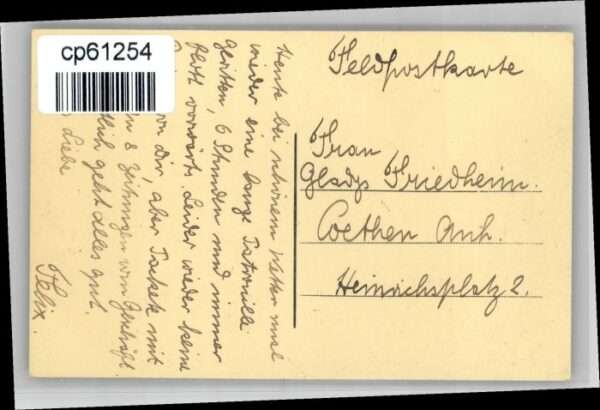 cp61254
Feldpostkarte
Frau
Gladys Friedheim.
Coethen Anh.
Heinrichsplatz 2.
Heute bei schönem Wetter mal
wieder eine lange Patrouille
geritten, 6 Stunden und immer
flott vorwärts. Leider wieder keine
von Dir, aber Packete mit
8 Zeitungen vom Geschäft.
geht alles gut.
Liebe
Felix.